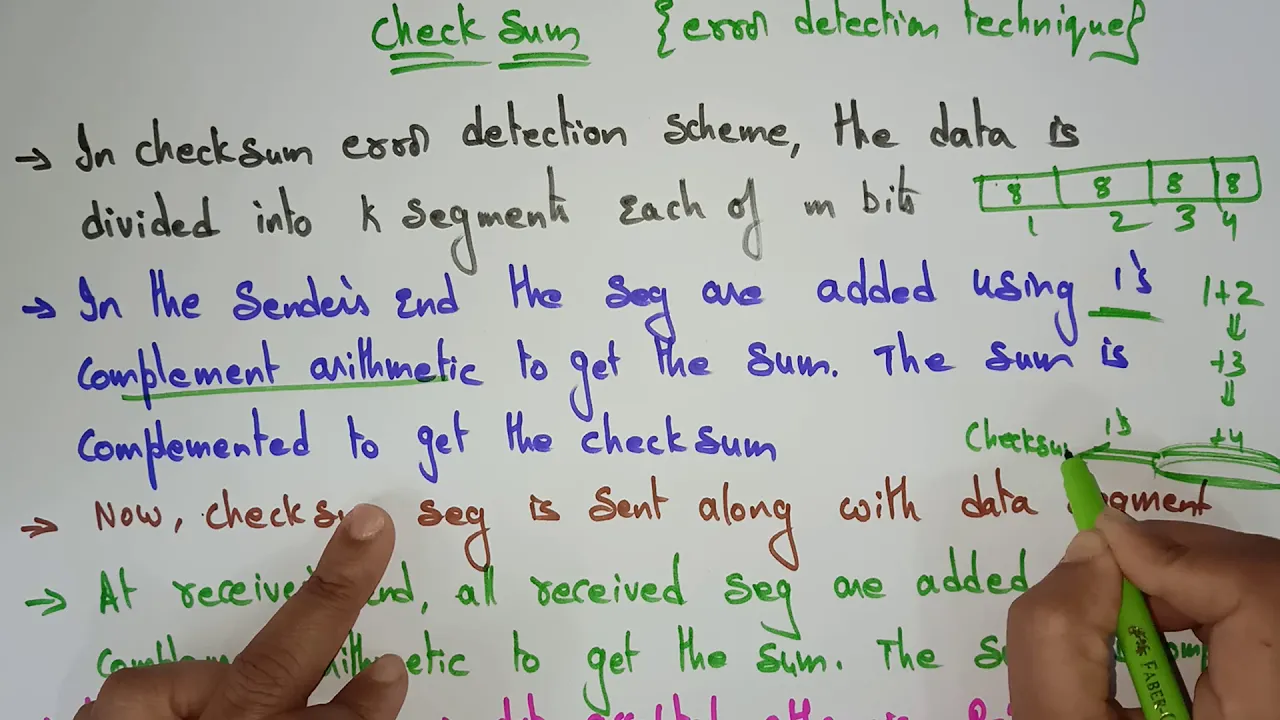 Check Sum {error detection technique}
→ In checksum error detection scheme, the data is
divided into k segments each of m bits
8 8 8 8
1 2 3 4
→ In the Sender's End the seg are added using 1's
complement arithmetic to get the sum. The sum is
complemented to get the checksum
1+2
+3
+4
1's
Checksum
→ Now, checksum seg is sent along with data segment
→ At received end, all received seg are added
complement arithmetic to get the sum. The
FABER